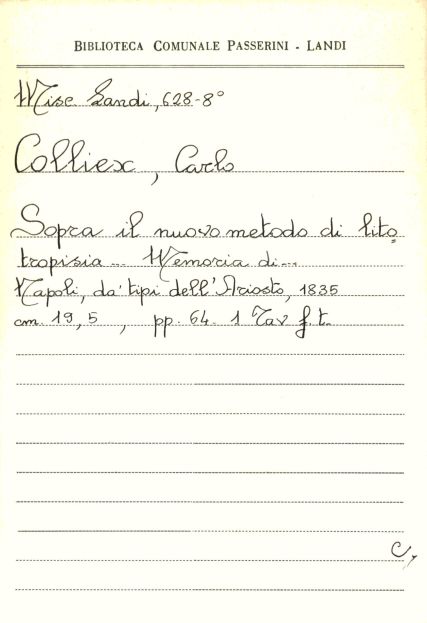 BIBLIOTECA COMUNALE PASSERINI - LANDI
Misc Landi, 628-8°
Colliex, Carlo
Sopra il nuovo metodo di lito
tropisia ... Memoria di...
Napoli, da' tipi dell'Ariosto, 1835
cm. 19,5 , pp. 64. 1 Tav f.t.